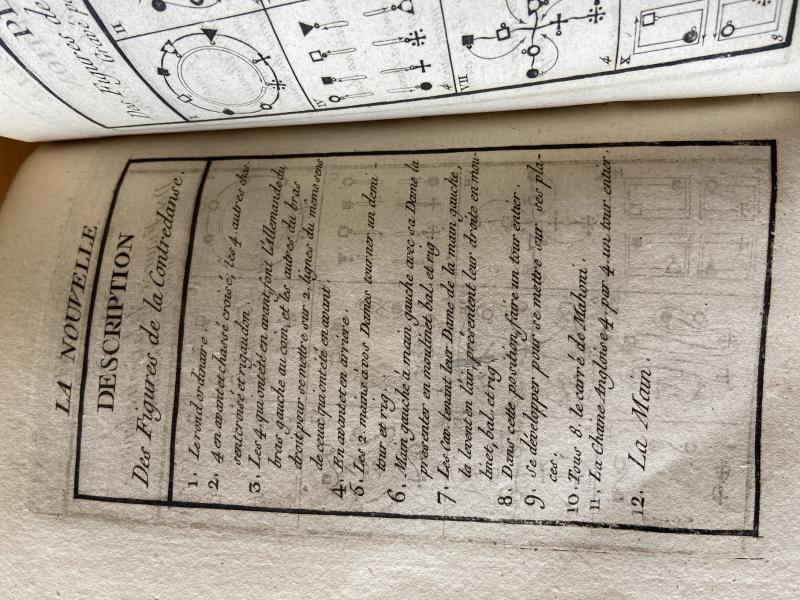 LA NOUVELLE
DESCRIPTION
Des Figures de la Contredanse.
1. Le rond ordinaire.
2. 4 en avant et chassé croisé, les 4 autres chas-
sent croisé et rigaudon.
3. Les 4 qui ont été en avant, font l'Allemande du
bras gauche au coin, et les autres du bras
droit pour se mettre sur 2 lignes du même sens
de ceux qui ont été en avant
4. En avant et en arriere.
5. Les 2 mains à vos Dames tourner un demi-
tour et rig.
6. Main gauche à main gauche avec sa Dame la
présenter en moulinet, bal. et rig.
7. Les Cav. tenant leur Dame de la main gauche,
la levent en l'air, présentent leur droite en mou-
linet, bal. et rig
8. Dans cette position, faire un tour entier.
9. Se développer pour se mettre sur ses pla-
ces.
10. Tous 8. le carré de Mahoni.
11. La Chaine Angloise 4. par 4. un tour entier.
12. La Main.
Des Figures de
II
IV
VII
4
X
8